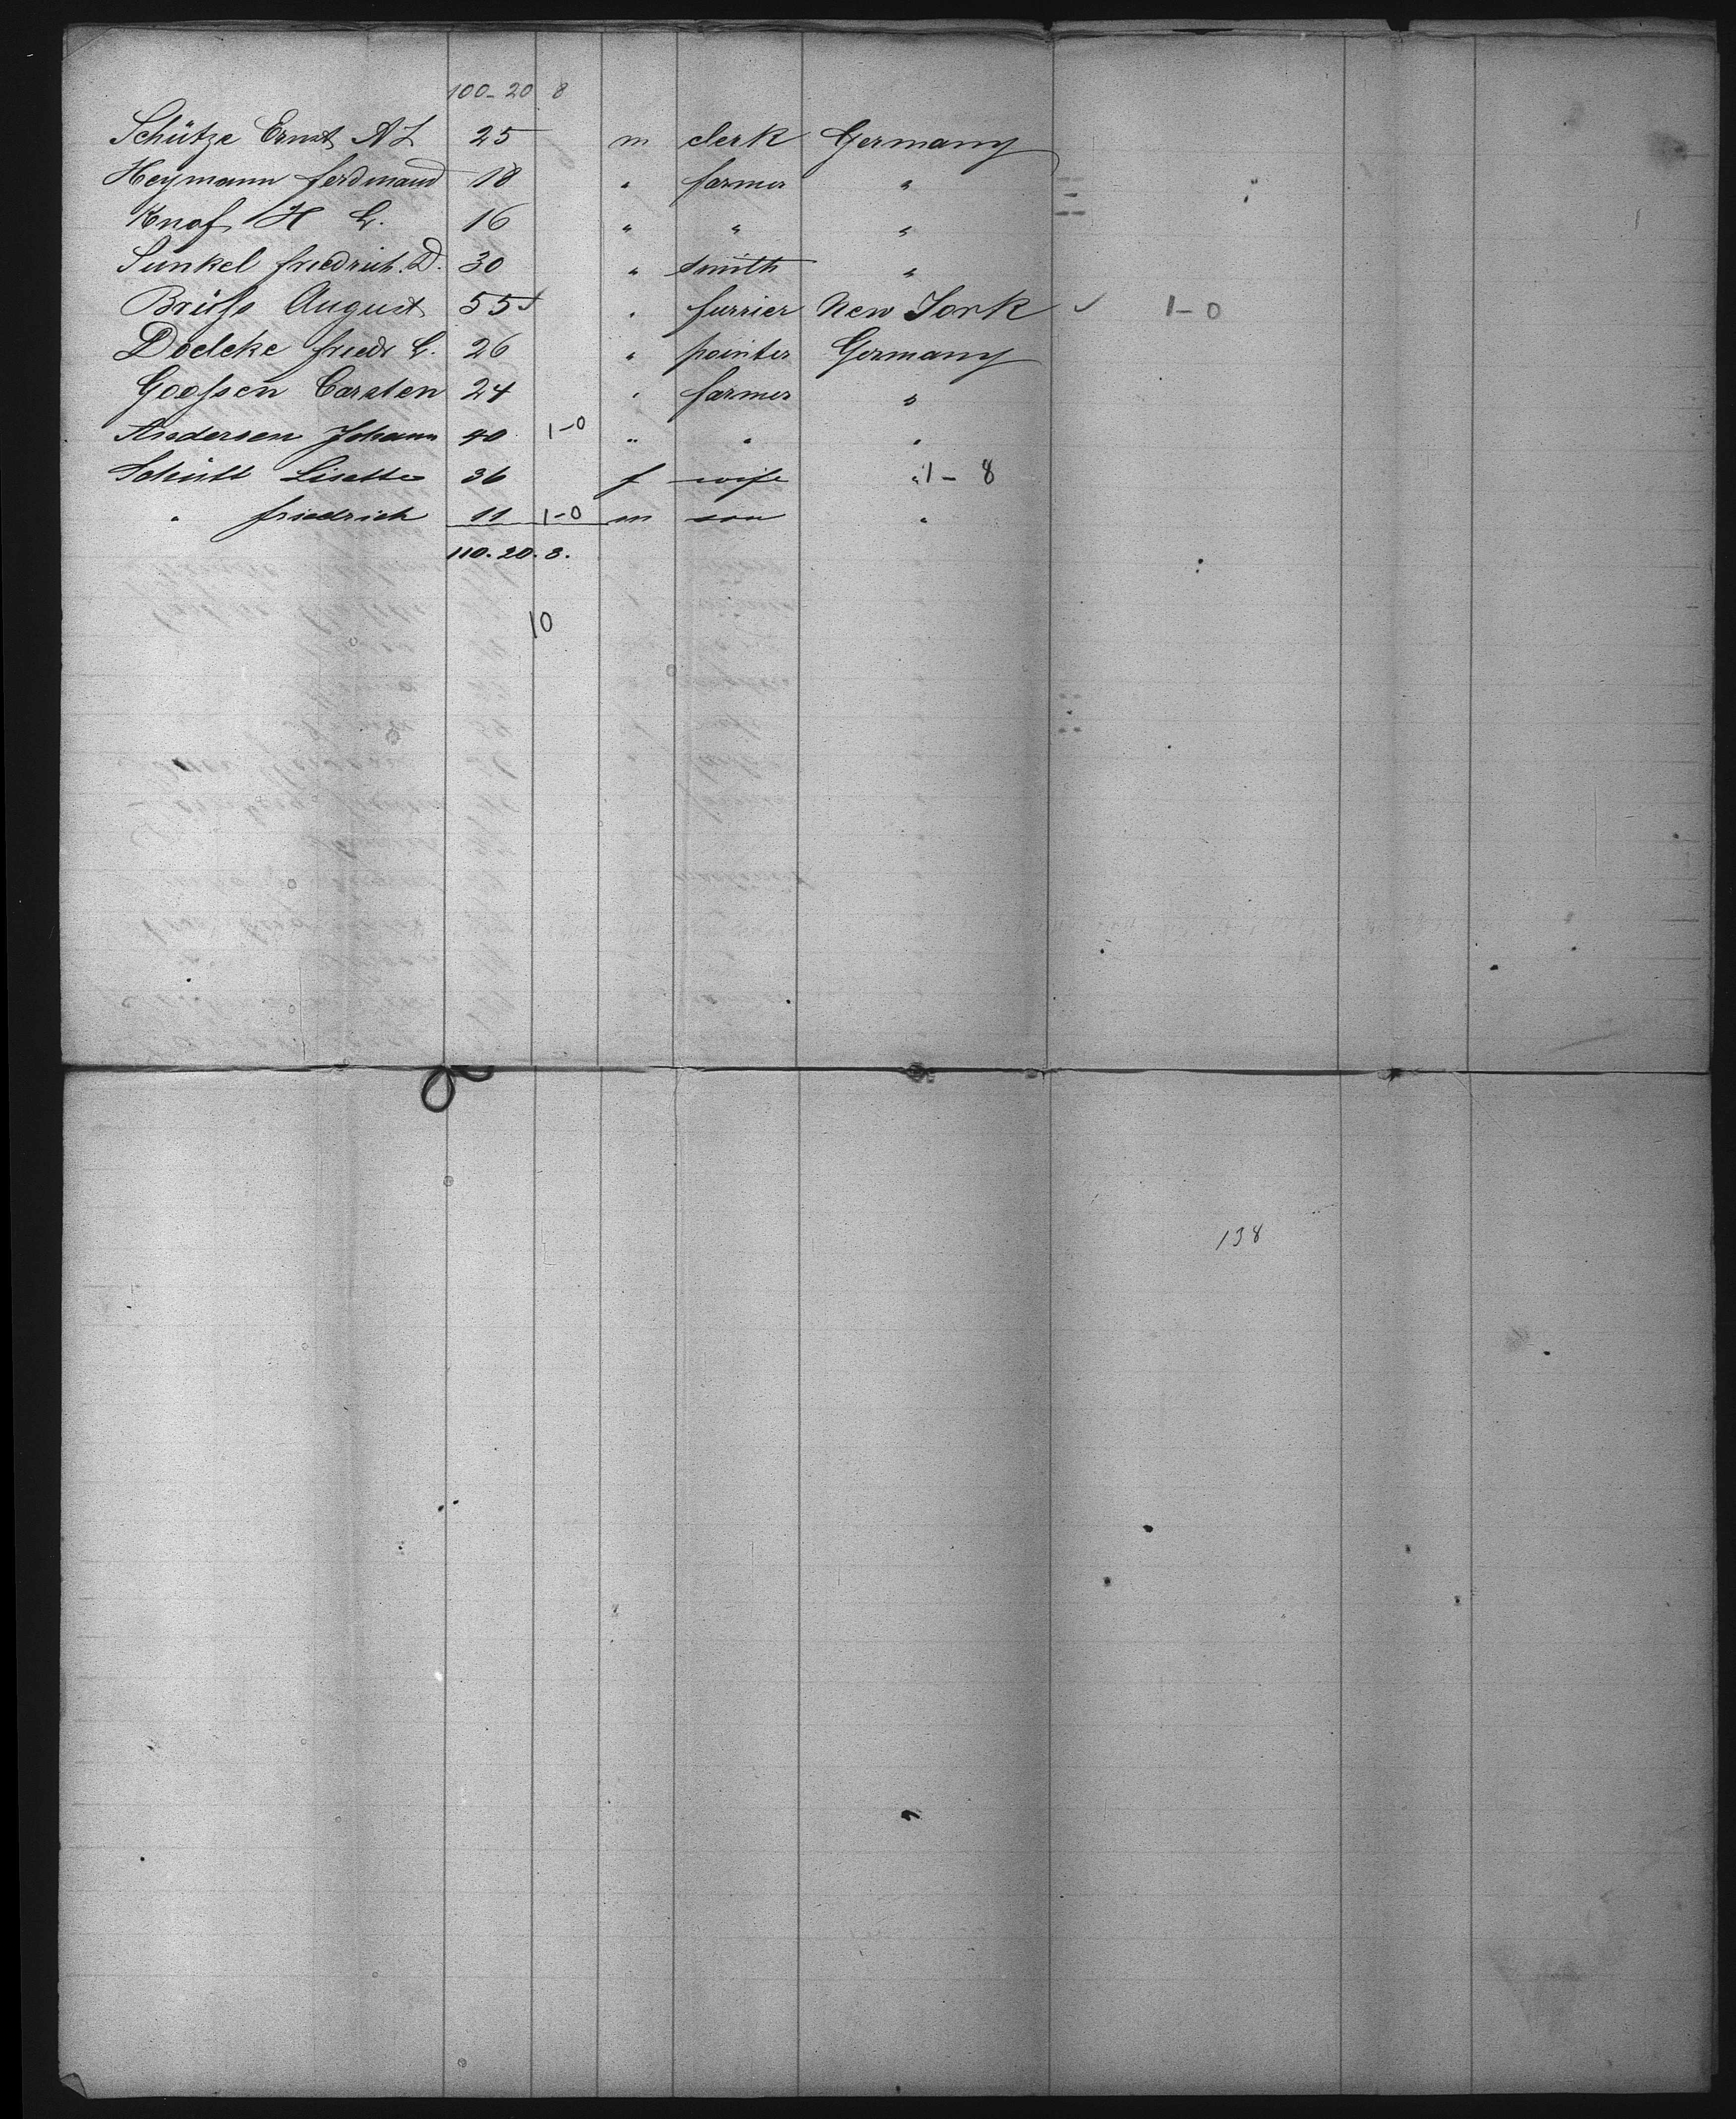 100-20 8
Schütze Ernst A L 25 m clerk Germany
Heymann Ferdinand 18 " farmer "
Knof H G. 16 " " "
Sunkel Friedrich D. 30 " smith "
Brüss August 55 " furrier New York 1-0
Doelcke Friedr G. 26 " painter Germany
Goossen Carsten 24 " farmer "
Andersen Johann 40 1-0 " " "
Schütt Lisette 36 f wife " 1-8
" Friedrich 11 1-0 m son "
110. 20. 8.
10
138